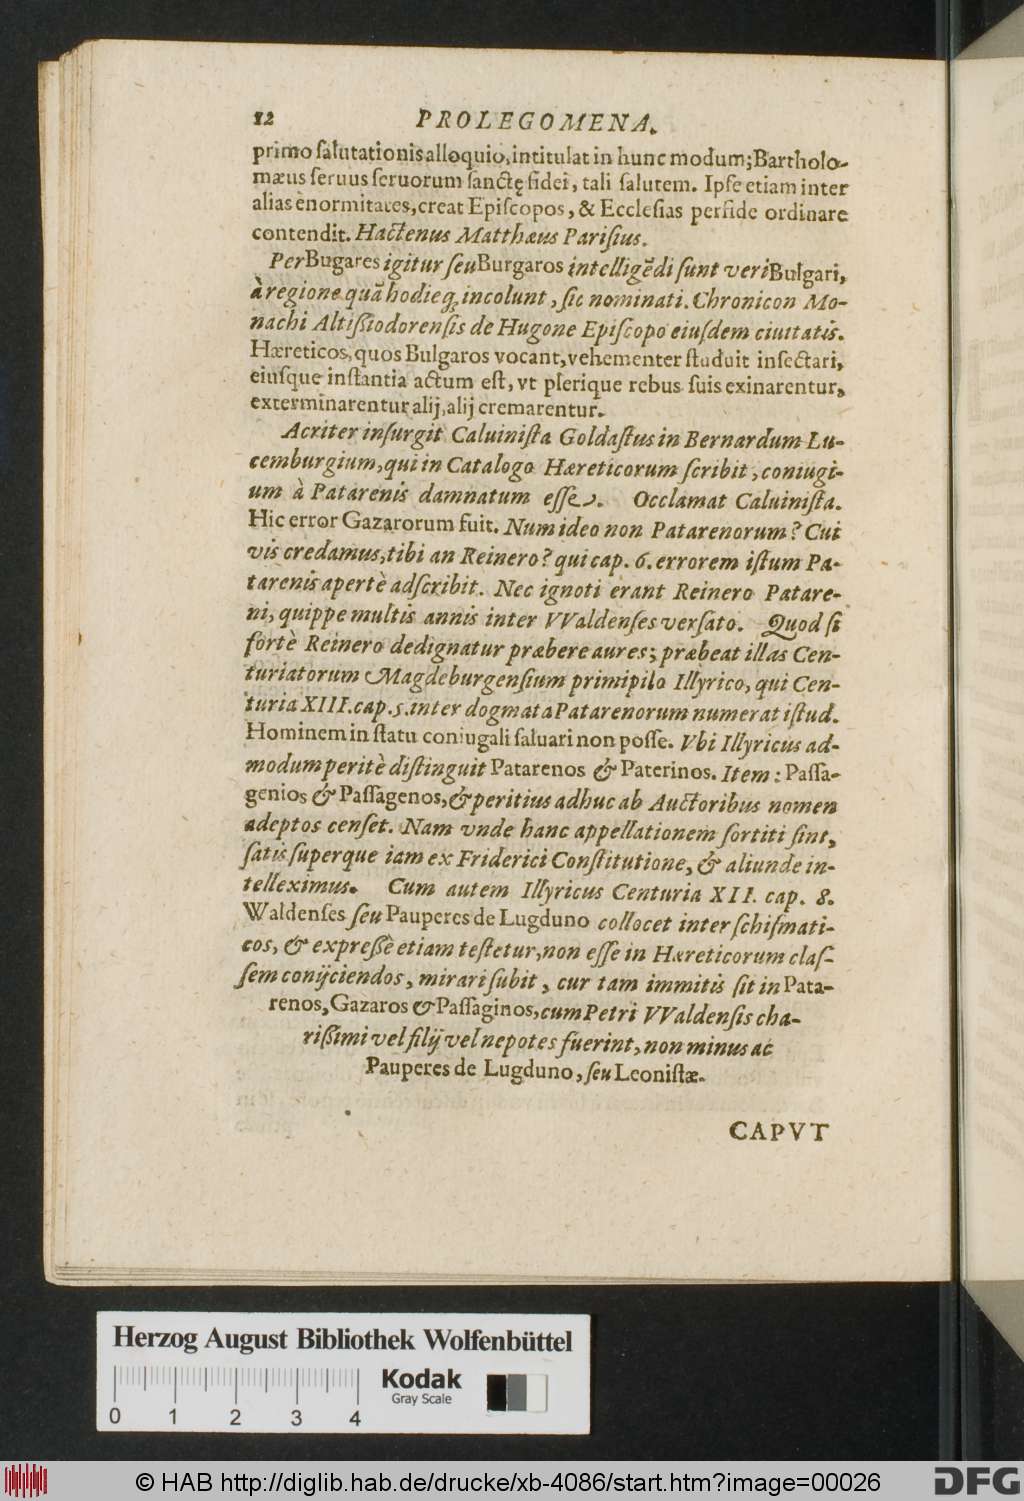 12 PROLEGOMENA.
primo ſalutationis alloquio, intitulat in hunc modum; Bartholo-
mæus ſeruus ſeruorum ſanctę fidei, tali ſalutem. Ipſe etiam inter
alias ènormitates, creat Epiſcopos, & Eccleſias perfide ordinare
contendit. Hactenus Matthæus Pariſius.
Per Bugares igitur ſeu Burgaros intelligẽdi ſunt veri Bulgari,
à regione quã hodieq; incolunt, ſic nominati. Chronicon Mo-
nachi Altißiodorenſis de Hugone Epiſcopo eiuſdem ciuitatis.
Hæreticos, quos Bulgaros vocant, vehementer ſtuduit inſectari,
eiuſque inſtantia actum eſt, vt plerique rebus ſuis exinarentur,
exterminarentur alij, alij cremarentur.
Acriter inſurgit Caluiniſta Goldaſtus in Bernardum Lu-
cemburgium, qui in Catalogo Hæreticorum ſcribit, coniugi-
um à Patarenis damnatum eſſe. Occlamat Caluiniſta.
Hic error Gazarorum fuit. Num ideo non Patarenorum? Cui
vis credamus, tibi an Reinero? qui cap. 6. errorem iſtum Pa-
tarenis apertè adſcribit. Nec ignoti erant Reinero Patare-
ni, quippe multis annis inter VValdenſes verſato. Quod ſi
fortè Reinero dedignatur præbere aures; præbeat illas Cen-
turiatorum Magdeburgenſium primipilo Illyrico, qui Cen-
turia XIII. cap. 5. inter dogmata Patarenorum numerat iſtud.
Hominem in ſtatu coniugali ſaluari non poſſe. Vbi Illyricus ad-
modum peritè diſtinguit Patarenos & Paterinos. Item: Paſſa-
genios & Paſſagenos, & peritius adhuc ab Auctoribus nomen
adeptos cenſet. Nam vnde hanc appellationem ſortiti ſint,
ſatis ſuperque iam ex Friderici Conſtitutione, & aliunde in-
telleximus. Cum autem Illyricus Centuria XII. cap. 8.
Waldenſes ſeu Pauperes de Lugduno collocet inter ſchiſmati-
cos, & expreßè etiam teſtetur, non eſſe in Hæreticorum claſ-
ſem conijciendos, mirari ſubit, cur tam immitis ſit in Pata-
renos, Gazaros & Paſſaginos, cum Petri VValdenſis cha-
rißimi vel filij vel nepotes fuerint, non minus ac
Pauperes de Lugduno, ſeu Leoniſtæ.
CAPVT
Herzog August Bibliothek Wolfenbüttel
Kodak
Gray Scale
0 1 2 3 4
© HAB http://diglib.hab.de/drucke/xb-4086/start.htm?image=00026
DFG